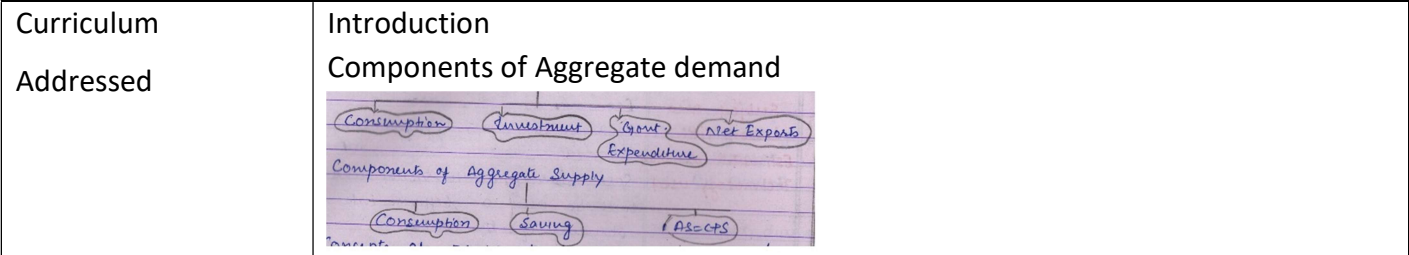 Curriculum
Addressed
Introduction
Components of Aggregate demand
Consumption Investment Govt. Expenditure Net Exports
Components of Aggregate Supply
Consumption Saving AS=C+S
Concepts of